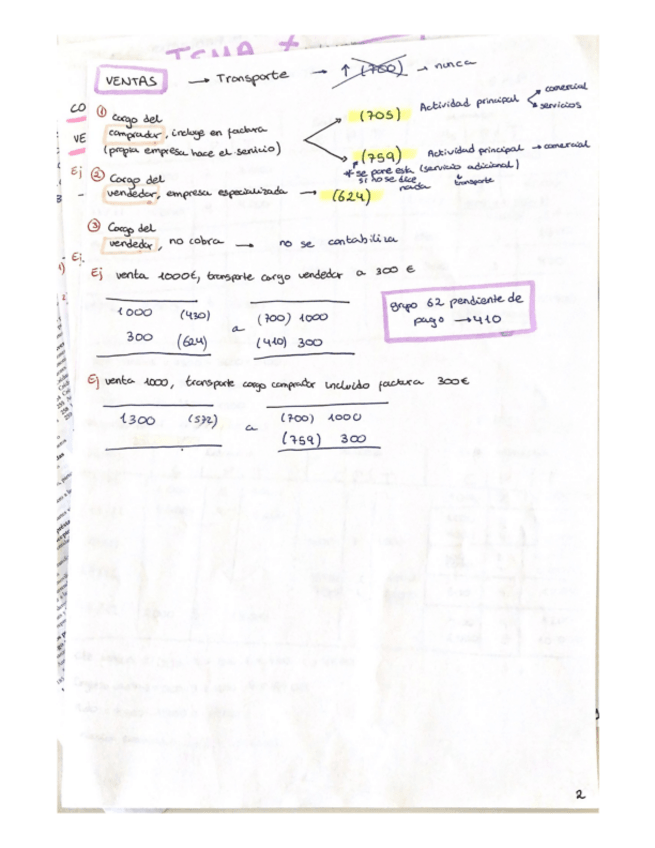 TEMA
VENTAS → Transporte → ↑ (700) → nunca
① Cargo del
comprador, incluye en factura
(propia empresa hace el servicio)
(705) Actividad principal
comercial
servicios
(759) Actividad principal → comercial
* se pone esta (servicio adicional)
si no se dice
nada
transporte
CO
VE
Ej
② Cargo del
vendedor, empresa especializada → (624)
③ Cargo del
vendedor, no cobra → no se contabiliza
Ej.
Ej venta 1000€, transporte cargo vendedor a 300 €
1000 (430) a (700) 1000
300 (624) (410) 300
grupo 62 pendiente de
pago → 410
Ej venta 1000, transporte cargo comprador incluido factura 300€
1300 (572) a (700) 1000
(759) 300
2